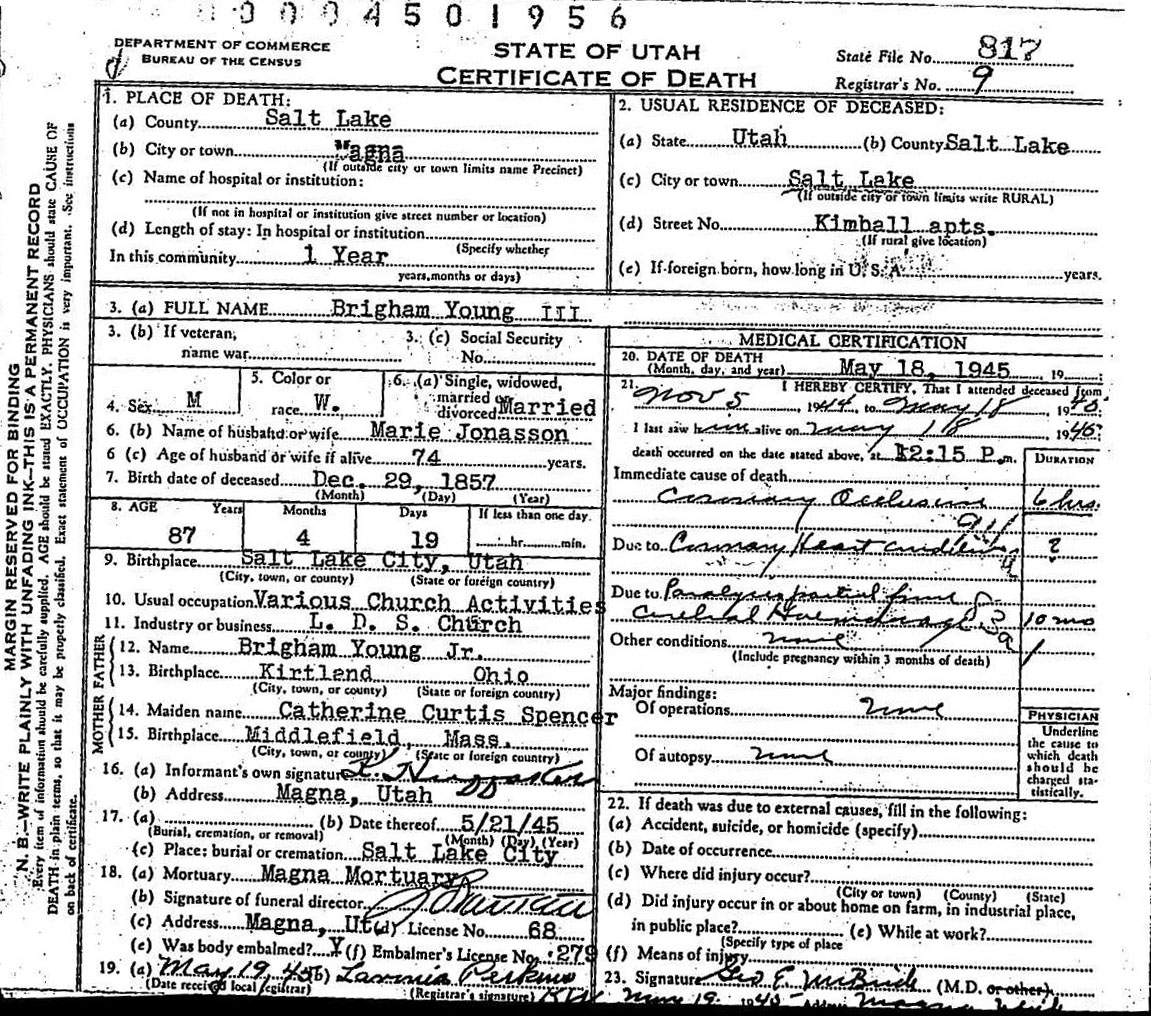 0004501956
DEPARTMENT OF COMMERCE
BUREAU OF THE CENSUS
STATE OF UTAH
CERTIFICATE OF DEATH
State File No. 817
Registrar's No. 9
MARGIN RESERVED FOR BINDING
N. B.—WRITE PLAINLY WITH UNFADING INK—THIS IS A PERMANENT RECORD
Every item of information should be carefully supplied. AGE should be stated EXACTLY. PHYSICIANS should state CAUSE OF
DEATH in plain terms, so that it may be properly classified. Exact statement of OCCUPATION is very important. See instructions
on back of certificate.
1. PLACE OF DEATH:
(a) County Salt Lake
(b) City or town Magna
(If outside city or town limits name Precinct)
(c) Name of hospital or institution:
(If not in hospital or institution give street number or location)
(d) Length of stay: In hospital or institution
(Specify whether
In this community 1 Year
years, months or days)
2. USUAL RESIDENCE OF DECEASED:
(a) State Utah (b) County Salt Lake
(c) City or town Salt Lake
(If outside city or town limits write RURAL)
(d) Street No. Kimball apts.
(If rural give location)
(e) If foreign born, how long in U. S. A. years.
3. (a) FULL NAME Brigham Young III
3. (b) If veteran, name war
3. (c) Social Security No.
4. Sex M
5. Color or race W.
6. (a) Single, widowed, married or divorced Married
6. (b) Name of husband or wife Marie Jonasson
6 (c) Age of husband or wife if alive 74 years.
7. Birth date of deceased Dec. 29, 1857
(Month) (Day) (Year)
8. AGE Years Months Days If less than one day
87 4 19 hr. min.
9. Birthplace Salt Lake City, Utah
(City, town, or county) (State or foreign country)
10. Usual occupation Various Church Activities
11. Industry or business L. D. S. Church
FATHER
12. Name Brigham Young Jr.
13. Birthplace Kirtland Ohio
(City, town, or county) (State or foreign country)
MOTHER
14. Maiden name Catherine Curtis Spencer
15. Birthplace Middlefield, Mass.
(City, town, or county) (State or foreign country)
16. (a) Informant's own signature
(b) Address Magna, Utah
17. (a) (b) Date thereof 5/21/45
(Burial, cremation, or removal) (Month) (Day) (Year)
(c) Place: burial or cremation Salt Lake City
18. (a) Mortuary Magna Mortuary
(b) Signature of funeral director
(c) Address Magna, Ut (d) License No. 68
(e) Was body embalmed? Y (f) Embalmer's License No. 279
19. (a) May 19, 45 (b) Lavinia Perkins
(Date received local registrar) (Registrar's signature)
MEDICAL CERTIFICATION
20. DATE OF DEATH
(Month, day, and year) May 18, 1945, 19
21. I HEREBY CERTIFY, That I attended deceased from
Nov 5, 1944, to May 18 1945
I last saw him alive on May 18 1945
death occurred on the date stated above, at 12:15 P. m.
DURATION
Immediate cause of death
Coronary Occlusion 6 hrs.
Due to Coronary Heart condition ?
Due to Paralysis partial from
Cerebral Hemorrhage 10 mo
Other conditions none
(Include pregnancy within 3 months of death)
Major findings:
Of operations none
Of autopsy none
PHYSICIAN
Underline
the cause to
which death
should be
charged sta-
tistically.
22. If death was due to external causes, fill in the following:
(a) Accident, suicide, or homicide (specify)
(b) Date of occurrence
(c) Where did injury occur?
(City or town) (County) (State)
(d) Did injury occur in or about home on farm, in industrial place,
in public place? (e) While at work?
(Specify type of place
(f) Means of injury
23. Signature Geo E. McBride (M.D. or other)
May 19 1945 Magna Utah